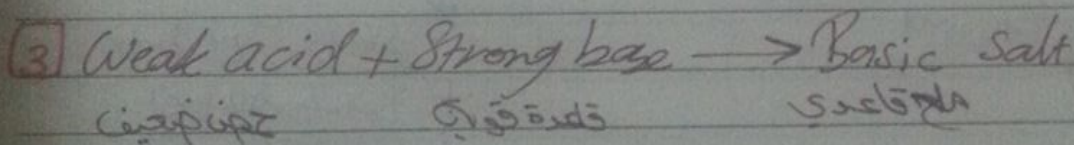 3 Weak acid + Strong base → Basic Salt
حمض ضعيف قاعدة قوية ملح قاعدي